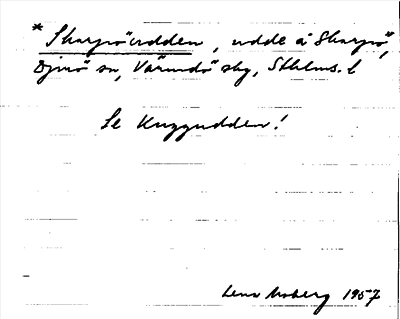 * Skarpöudden, udde å Skarpö,
Djurö sn, Värmdö skg, Sthlms. l
Se Kuggudden!
Lena Moberg 1957